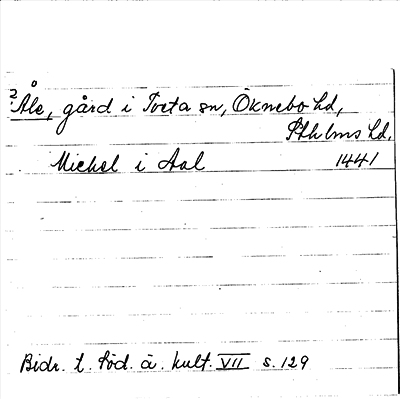 2. Åle, gård i Toeta sn, Öknebo hd,
Sthlms hd.
Michel i Aal 1441
Bidr. t. Söd. ä. kult. VII s. 129